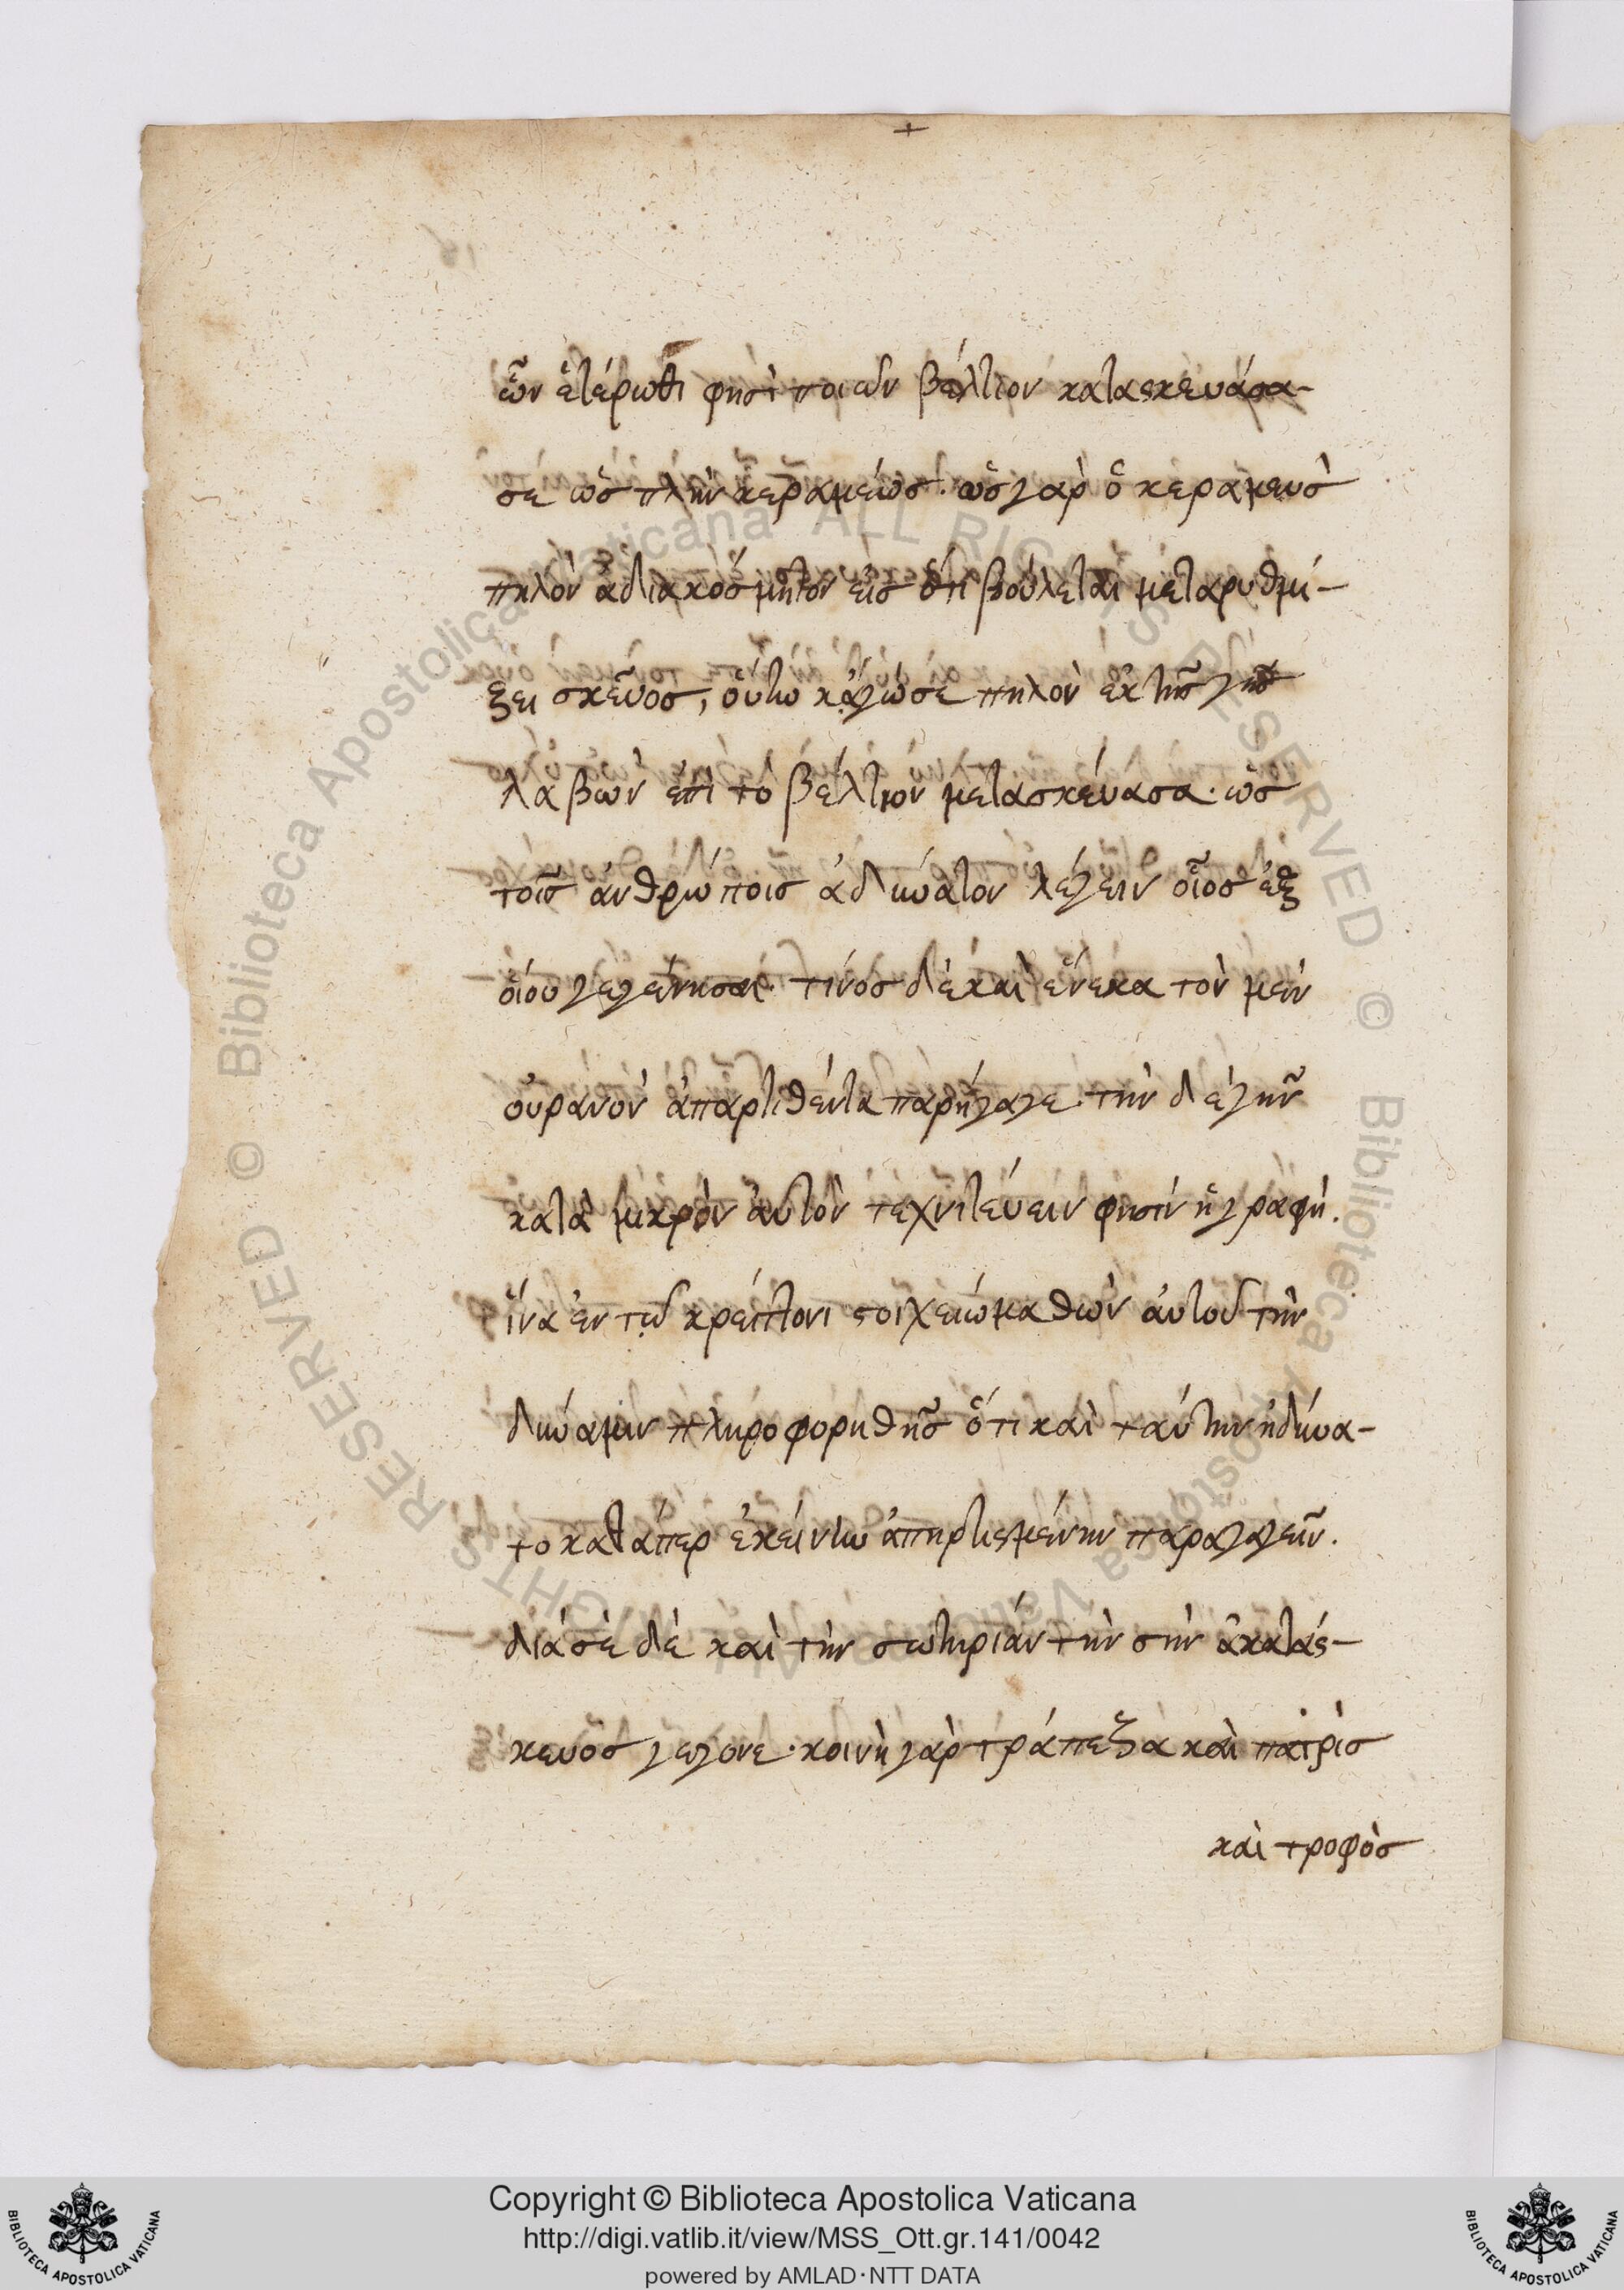 ὧν ἑτέρωθι φησὶ ποιῶν βέλτιον κατασκευάσα-
σε ὡς πλὴν κεραμέως· ὡς γὰρ ὁ κεραμεὺς
πηλὸν ἀδιακόσμητον εἰς ὅτι βούλεται μεταρυθμί-
ξει σκεῦος, οὕτω κἀγώ σε πηλὸν ἐκ τῆς γῆς
λαβὼν ἐπὶ το βέλτιον μετασκεύασα· ὡς
τοῖς ἀνθρώποις ἀδύνατον λέγειν οἷος ἐξ
οἵου γεγένησαι· τίνος δὲ καὶ ἕνεκα τὸν μὲν
οὐρανὸν ἀπαρτιθέντα παρήγαγε· τὴν δὲ γῆν
κατὰ μικρὸν αὐτὸν τεχνιτεύειν φησὶν ἡ γραφή.
ἵνα ἐν τῷ κρείττονι στοιχείω μαθὼν αὐτοῦ τὴν
δύναμιν πληροφορηθῆς ὅτι καὶ ταύτην ἠδύνα-
το καθάπερ ἐκείνην ἀπηρτισμένην παραγαγεῖν.
διά σε δὲ καὶ τὴν σωτηρίαν τὴν σὴν ἀκατάσ-
κευος γέγονε· κοινὴ γὰρ τράπεζα καὶ πατρὶς
καὶ τροφὸς
Copyright © Biblioteca Apostolica Vaticana
http://digi.vatlib.it/view/MSS_Ott.gr.141/0042
powered by AMLAD·NTT DATA
BIBLIOTECA APOSTOLICA VATICANA
BIBLIOTECA APOSTOLICA VATICANA